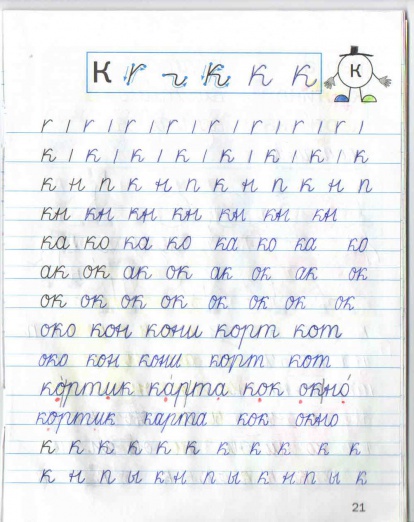 К г к к к К
г г г г г г г г
к к к к к к к к
к н п к н п к н п к н п
кн кн кн кн кн кн кн
ка ко ка ко ка ко ка ко
ак ок ак ок ак ок ак ок
ок ок ок ок ок ок ок ок
око кон кони корт кот
око кон кони корт кот
кортик карта кок окно
кортик карта кок окно
к к к к к к к к к к к к
к н п ы к н п ы к н п ы к
21